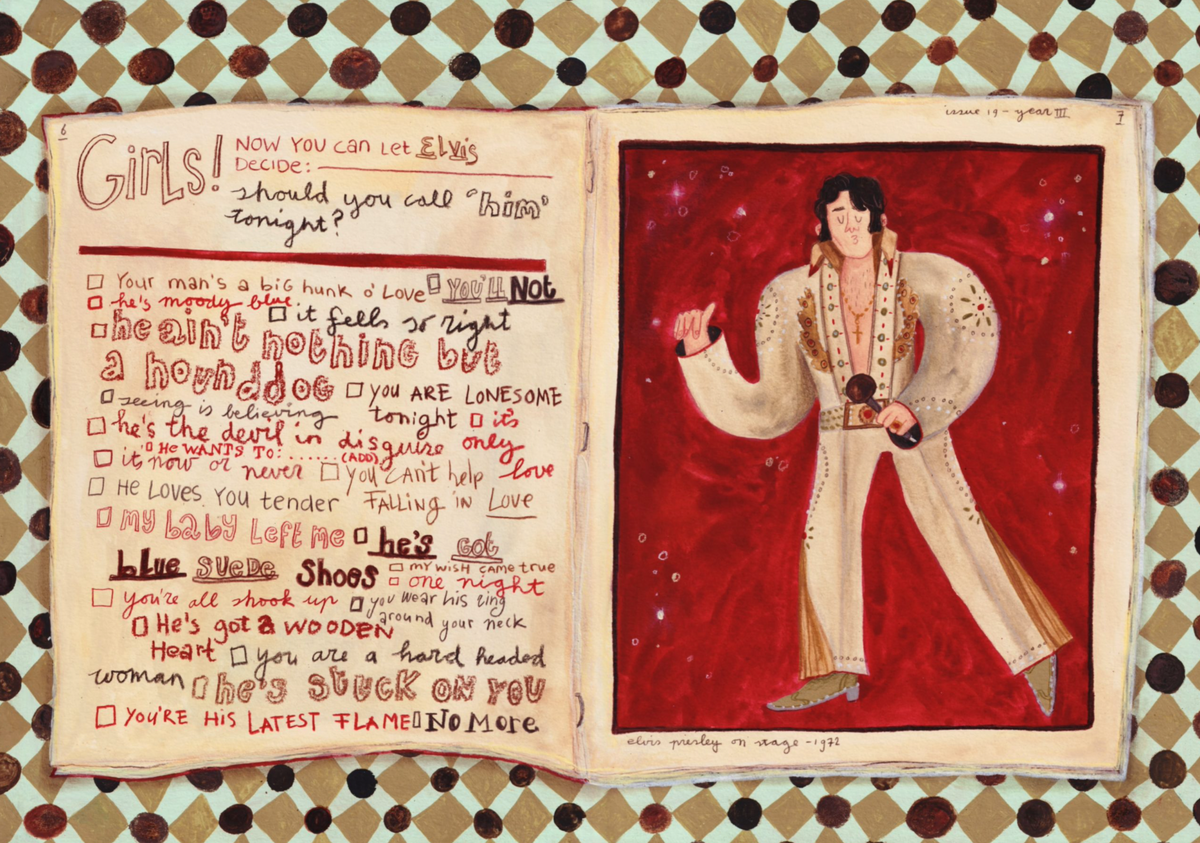 6
GiRLs! NOW YOU CAN LET ELVis
DECIDE:
should you call "him'
tonight?
Your man's a biG hunk o' Love You'll Not
he's moody blue. it fells so right
he ain't nothing but
a hounddog you ARE LONESOME
seeing is believing tonight it's
he's the devil in disguise only
HE WANTS TO: ...... (ADD)
it's now or never you can't help love
HE LOVES YOU tender FALLING in Love
my baby Left me he's Got
blue suede shoes my wish came true
one night
you're all shook up you wear his ring
He's got a WOODEN around your neck
Heart you are a hard headed
woman he's stuck on you
YOU'RE HIS LATEST FLAME No More
issue 19 - year III 7
elvis presley on stage - 1972